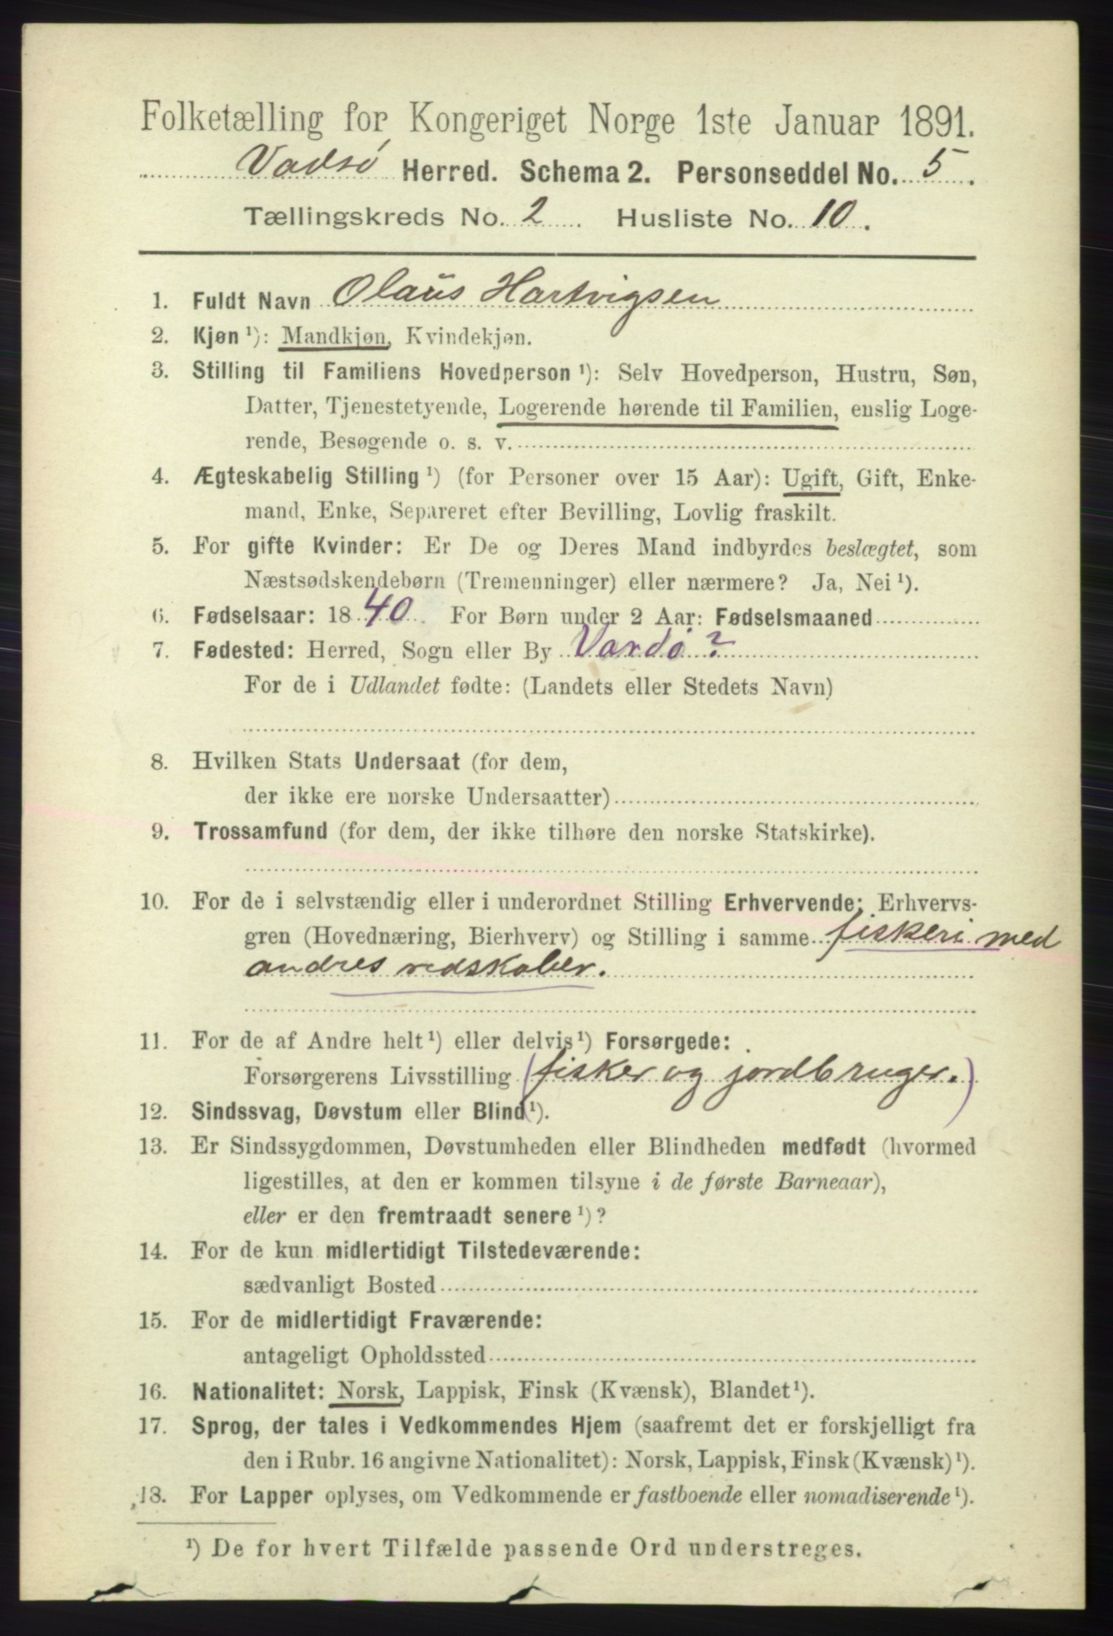 Folketælling for Kongeriget Norge 1ste Januar 1891.
Vadsø Herred. Schema 2. Personseddel No. 5.
Tællingskreds No. 2. Husliste No. 10.
1. Fuldt Navn Olaus Hartvigsen
2. Kjøn ¹): Mandkjøn, Kvindekjøn.
3. Stilling til Familiens Hovedperson ¹): Selv Hovedperson, Hustru, Søn,
Datter, Tjenestetyende, Logerende hørende til Familien, enslig Loge-
rende, Besøgende o. s. v.
4. Ægteskabelig Stilling ¹) (for Personer over 15 Aar): Ugift, Gift, Enke-
mand, Enke, Separeret efter Bevilling, Lovlig fraskilt.
5. For gifte Kvinder: Er De og Deres Mand indbyrdes beslægtet, som
Næstsødskendebørn (Tremenninger) eller nærmere? Ja, Nei ¹).
6. Fødselsaar: 1840. For Børn under 2 Aar: Fødselsmaaned
7. Fødested: Herred, Sogn eller By Vardø?
For de i Udlandet fødte: (Landets eller Stedets Navn)
8. Hvilken Stats Undersaat (for dem,
der ikke ere norske Undersaatter)
9. Trossamfund (for dem, der ikke tilhøre den norske Statskirke).
10. For de i selvstændig eller i underordnet Stilling Erhvervende: Erhvervs-
gren (Hovednæring, Bierhverv) og Stilling i samme fiskeri med
andres redskaber.
11. For de af Andre helt ¹) eller delvis ¹) Forsørgede:
Forsørgerens Livsstilling (fisker og jordbruger.)
12. Sindssvag, Døvstum eller Blind ¹).
13. Er Sindssygdommen, Døvstumheden eller Blindheden medfødt (hvormed
ligestilles, at den er kommen tilsyne i de første Barneaar),
eller er den fremtraadt senere ¹)?
14. For de kun midlertidigt Tilstedeværende:
sædvanligt Bosted
15. For de midlertidigt Fraværende:
antageligt Opholdssted
16. Nationalitet: Norsk, Lappisk, Finsk (Kvænsk), Blandet ¹).
17. Sprog, der tales i Vedkommendes Hjem (saafremt det er forskjelligt fra
den i Rubr. 16 angivne Nationalitet): Norsk, Lappisk, Finsk (Kvænsk) ¹).
18. For Lapper oplyses, om Vedkommende er fastboende eller nomadiserende ¹).
¹) De for hvert Tilfælde passende Ord understreges.